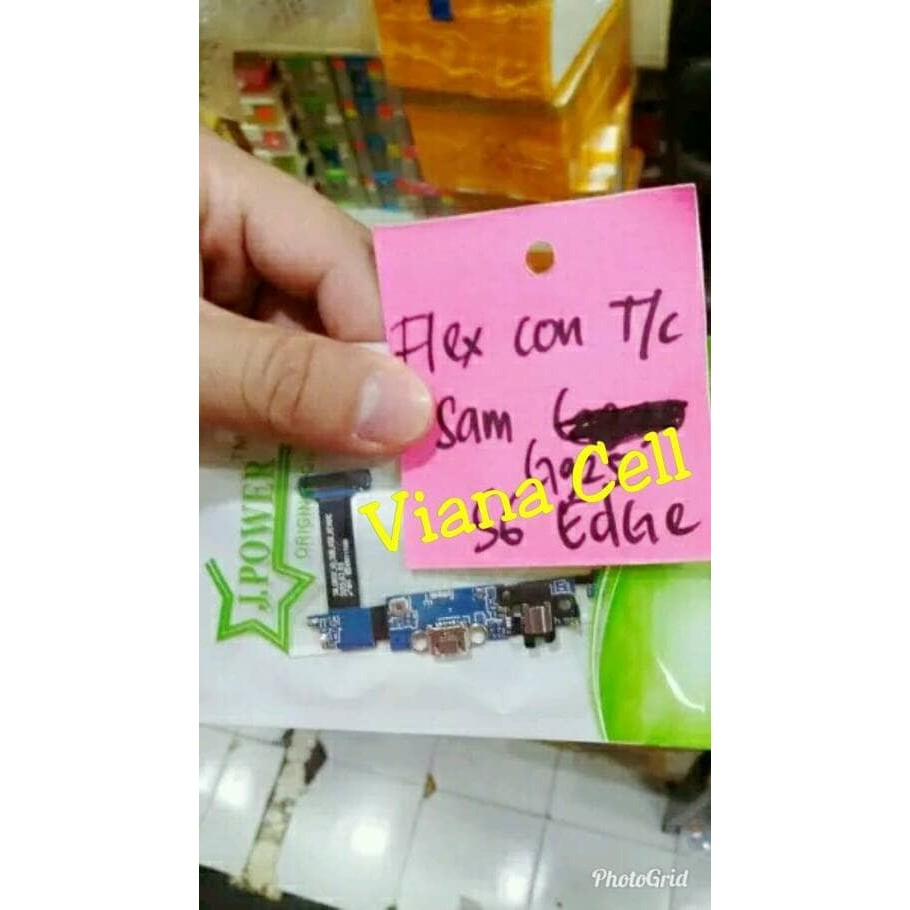 Flex con T/c
Sam
G925
S6 EdGe
Viana Cell
J.POWER
TM
PhotoGrid